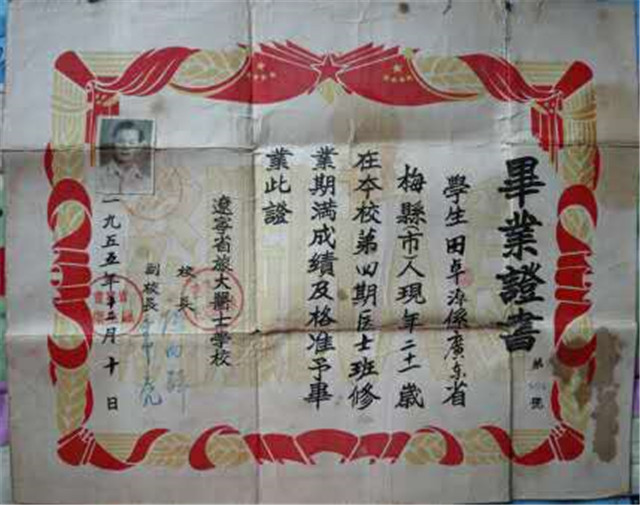 畢業證書
第 號
學生田卓淳係廣东省
梅縣(市)人現年二十一歲
在夲校第四期医士班修
業期滿成績及格准予畢
業此證
遼寧省旅大醫士學校
校長
副校長
一九五五年 二月十日